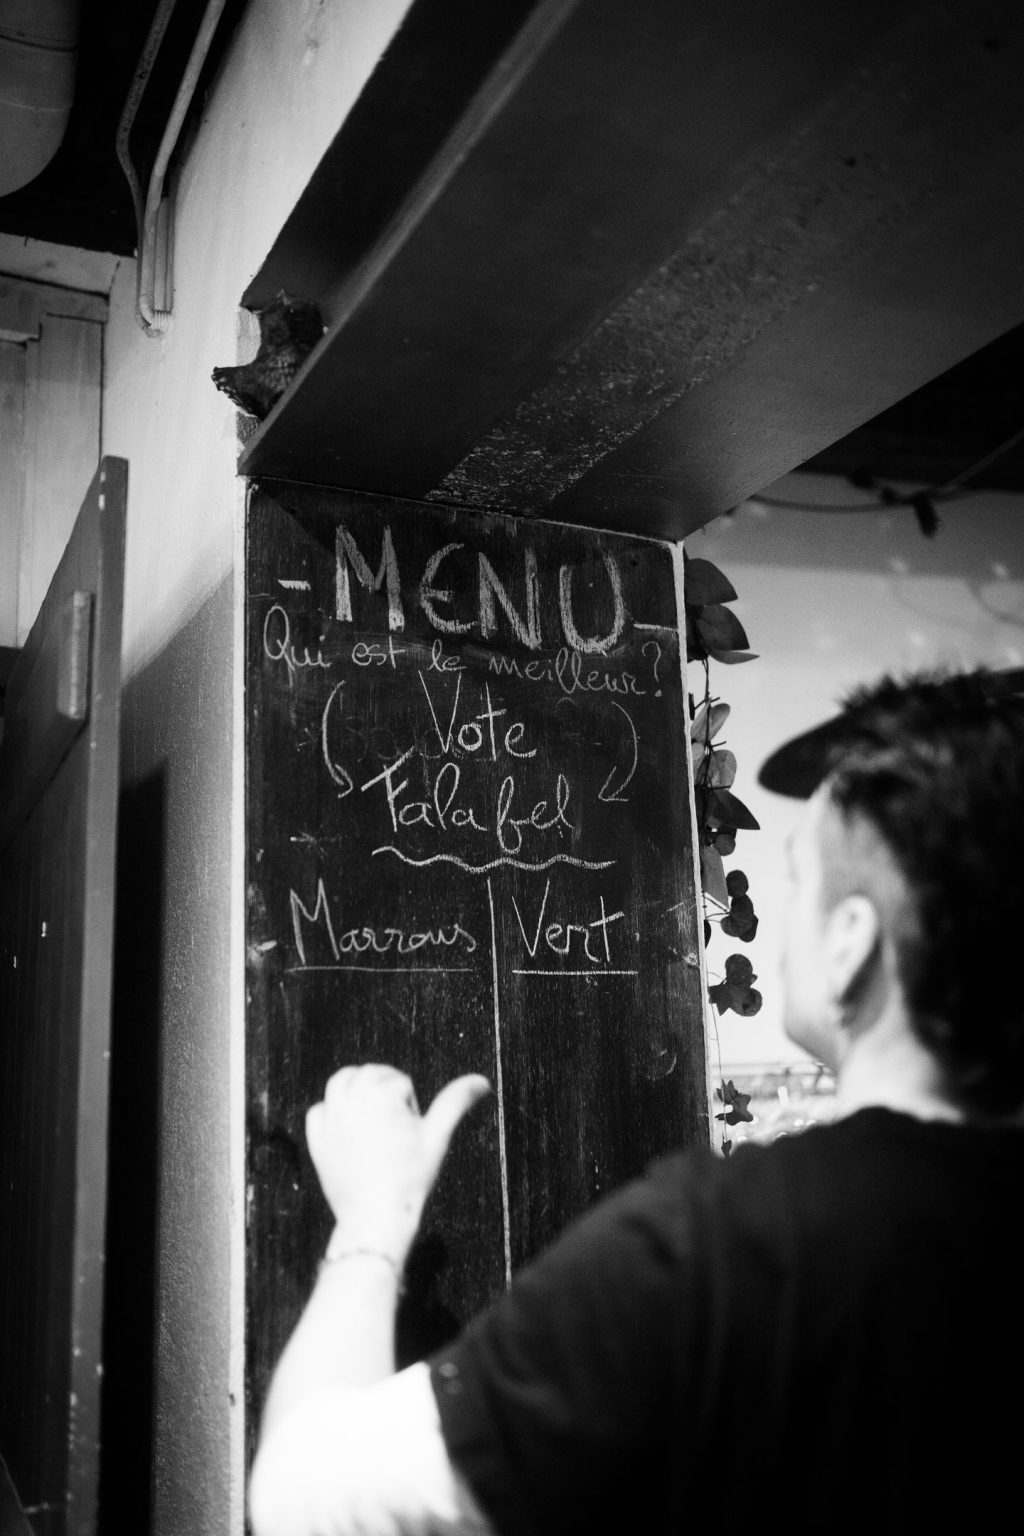 - MENU -
Qui est le meilleur?
Vote
Falafel
Marrous Vert